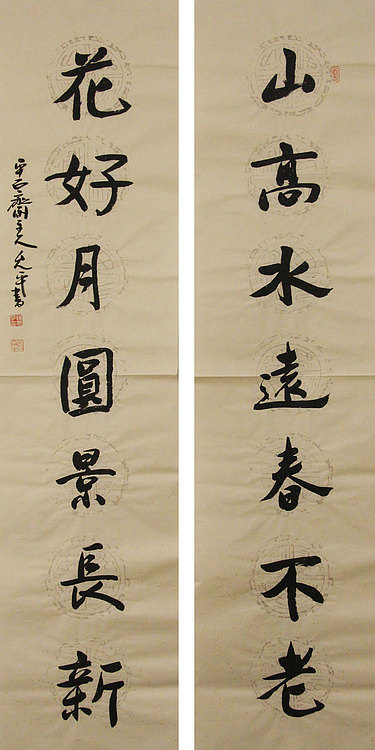 山高水遠春不老
花好月圓景長新
主人允平書